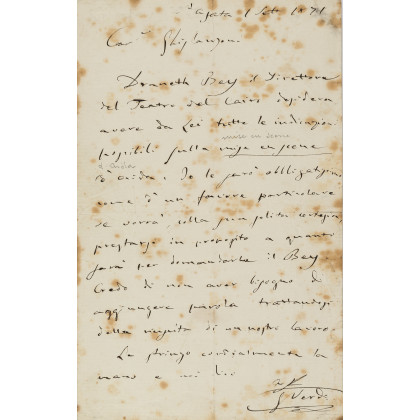 S. Agata 1 Sett 1871
Car. Ghislanzoni
Draneth Bey il Direttore
del Teatro del Cairo desidera
avere da Lei tutte le indicazioni
mise en scene
possibili sulla mise en scene
d'Aida. Io le sarò obbligatissimo
come d'un favore particolare
se vorrà colla sua solita cortesia
prestarsi in proposito a quanto
sarà per domandarle il Bey
Credo di non aver bisogno di
aggiungere parola trattandosi
della riuscita di un nostro lavoro.
Le stringo cordialmente la
mano e mi
G Verdi